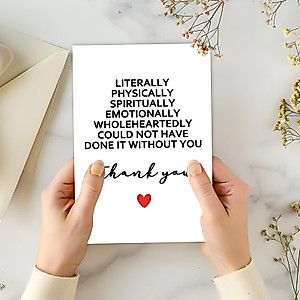 LITERALLY
PHYSICALLY
SPIRITUALLY
EMOTIONALLY
WHOLEHEARTEDLY
COULD NOT HAVE
DONE IT WITHOUT YOU
thank you